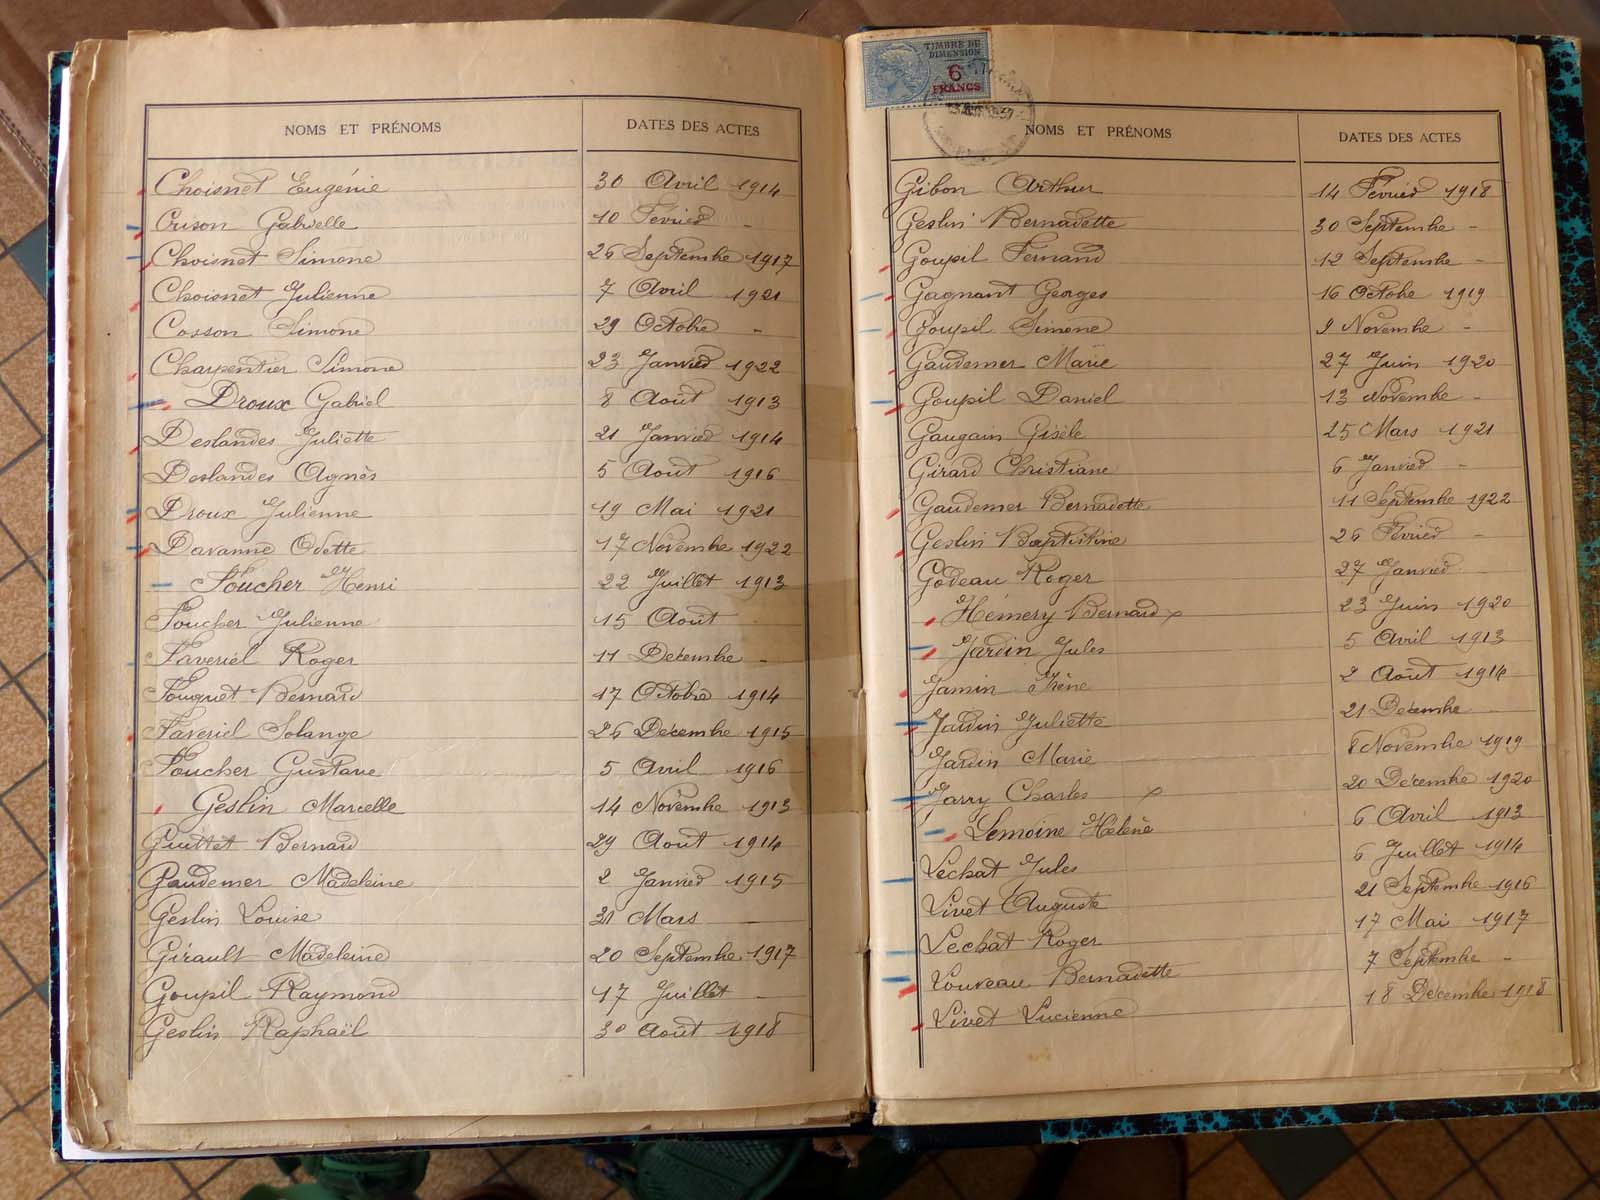 NOMS ET PRÉNOMS DATES DES ACTES
Choisnet Eugénie 30 Avril 1914
Gabrielle 10 Février -
Choisnet Simone 26 Septembre 1917
Choisnet Julienne 7 Avril 1921
Cosson Simone 29 Octobre -
Charpentier Simone 23 Janvier 1922
Droux Gabriel 8 Août 1913
Deslandes Juliette 21 Janvier 1914
Deslandes Agnès 5 Août 1916
Droux Julienne 19 Mai 1921
Davanne Odette 17 Novembre 1922
Foucher Henri 22 Juillet 1913
Foucher Julienne 15 Août
Faveriel Roger 11 Décembre -
Fouquet Bernard 17 Octobre 1914
Faveriel Solange 26 Décembre 1915
Foucher Gustave 5 Avril 1916
Geslin Marcelle 14 Novembre 1913
Guittet Bernard 29 Août 1914
Gaudemer Madeleine 2 Janvier 1915
Geslin Louise 31 Mars -
Girault Madeleine 20 Septembre 1917
Goupil Raymond 17 Juillet -
Geslin Raphaël 30 Août 1918
TIMBRE DE
DIMENSION
6
FRANCS
NOMS ET PRÉNOMS DATES DES ACTES
Gibon Arthur 14 Février 1918
Geslin Bernadette 30 Septembre -
Goupil Fernand 12 Septembre -
Gagnant Georges 16 Octobre 1919
Goupil Simone 9 Novembre -
Gaudemer Marie 27 Juin 1920
Goupil Daniel 13 Novembre -
Gaugain Gisèle 25 Mars 1921
Girard Christiane 6 Janvier -
Gaudemer Bernadette 11 Septembre 1922
Geslin Baptistine 26 Février -
Godeau Roger 27 Janvier -
Hémery Bernard x 23 Juin 1920
Jardin Jules 5 Avril 1913
Jamin Irène 2 Août 1914
Jardin Juliette 21 Décembre -
Jardin Marie 8 Novembre 1919
Jarry Charles x 20 Décembre 1920
Lemoine Hélène 6 Avril 1913
Lechat Jules 6 Juillet 1914
Livet Auguste 21 Septembre 1916
Lechat Roger 17 Mai 1917
Louveau Bernadette 7 Septembre -
Livet Lucienne 18 Décembre 1918